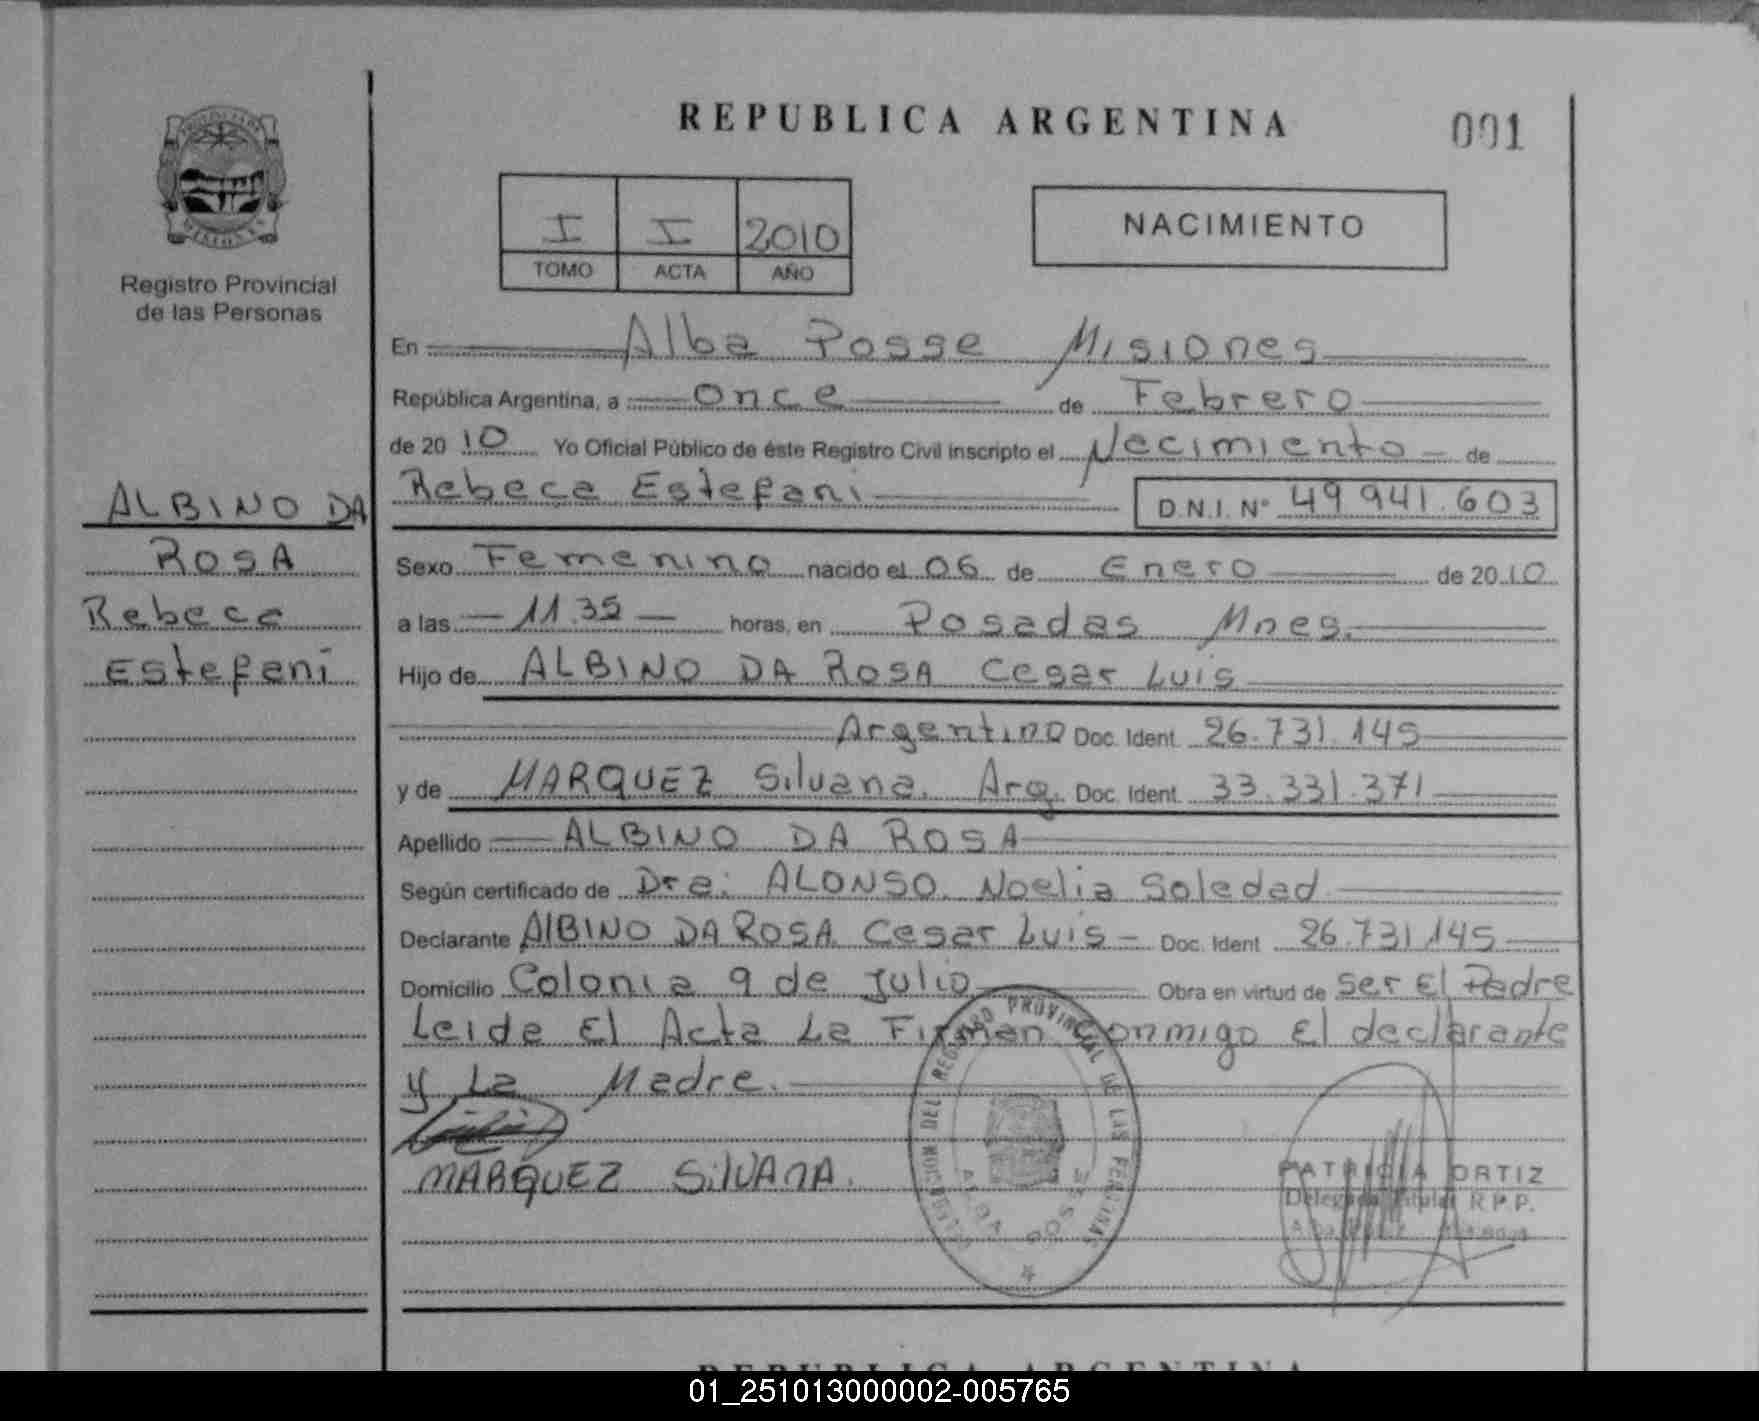 REPUBLICA ARGENTINA
001
MISIONES
Registro Provincial
de las Personas
I I 2010
TOMO ACTA AÑO
NACIMIENTO
En Alba Posse Misiones
República Argentina, a Once de Febrero
de 20 10 Yo Oficial Público de éste Registro Civil inscripto el Nacimiento de
Rebeca Estefani D.N.I. Nº 49 941.603
ALBINO DA
ROSA
Rebeca
Estefani
Sexo Femenino nacido el 06 de Enero de 20 10
a las 11.35 horas, en Posadas Mnes.
Hijo de ALBINO DA ROSA Cesar Luis
Argentino Doc. Ident. 26.731.145
y de MARQUEZ Silvana. Arg. Doc. Ident. 33.331.371
Apellido ALBINO DA ROSA
Según certificado de Dra: ALONSO Noelia Soledad
Declarante AlBINO DA ROSA Cesar Luis Doc. Ident 26.731.145
Domicilio Colonia 9 de Julio Obra en virtud de Ser El Padre
Leida El Acta La Firman Conmigo El declarante
y La Madre.
MARQUEZ SilVAnA.
DEL REGISTRO PROVINCIAL DE LAS PERSONAS
ALBA POSSE
PATRICIA ORTIZ
Delegada Titular R.P.P.
REPUBLICA ARGENTINA
01_251013000002-005765